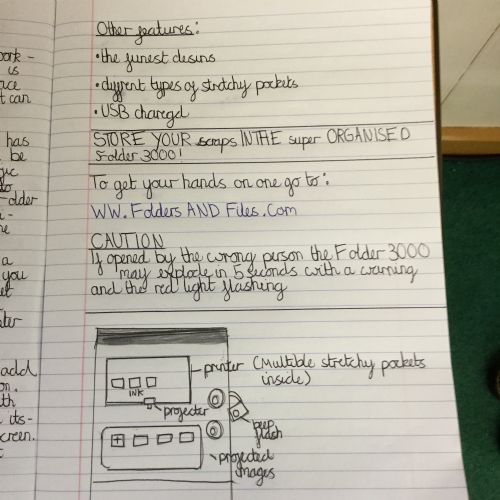 Other features:
•the funest desins
•dyfrent types of stretchy pockets
•USB charegd
STORE YOUR scraps IN THE super ORGANISED
Folder 3000!
To get your hands on one go to:
WW.Folders AND Files.Com
CAUTION
If opened by the wrong person the Folder 3000
may explode in 5 seconds with a warning
and the red light flashing
printer (Multible stretchy pockets
inside)
INK
projecter
beep
flash
projected
images
ork-
is
ace
t can
has
be
-older
a
you
ter
add
on.
th
its-
creen.